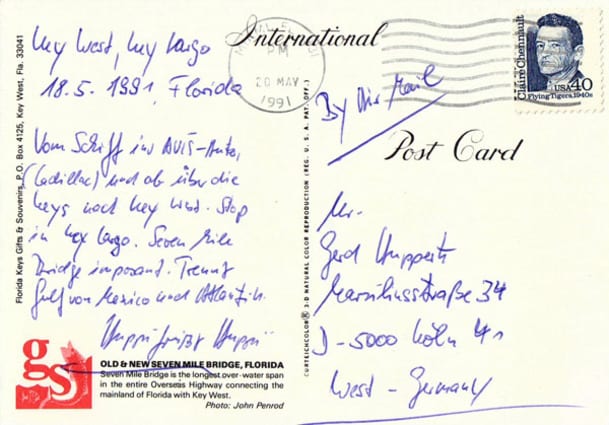 Key West, Key Largo
18.5.1991, Florida
Vom Schiff ins AVIS-Auto,
(Cadillac) und ab über die
Keys nach Key West. Stop
in Key Largo. Seven Mile
Bridge imposant. Trennt
Golf von Mexico und Atlantik.
Huppi grüßt Huppi
OLD & NEW SEVEN MILE BRIDGE, FLORIDA
Seven Mile Bridge is the longest over-water span
in the entire Overseas Highway connecting the
mainland of Florida with Key West.
Photo: John Penrod
gs
Florida Keys Gifts & Souvenirs, P.O. Box 4125, Key West, Fla. 33041
CURTEICHCOLOR® 3-D NATURAL COLOR REPRODUCTION (REG. U.S.A. PAT. OFF.)
International
Post Card
PM
20 MAY
1991
Claire Chennault
USA 40
Flying Tigers, 1940s
By Air Mail
Mr.
Gerd Huppertz
Marsiliusstraße 34
D-5000 Köln 41
West-Germany